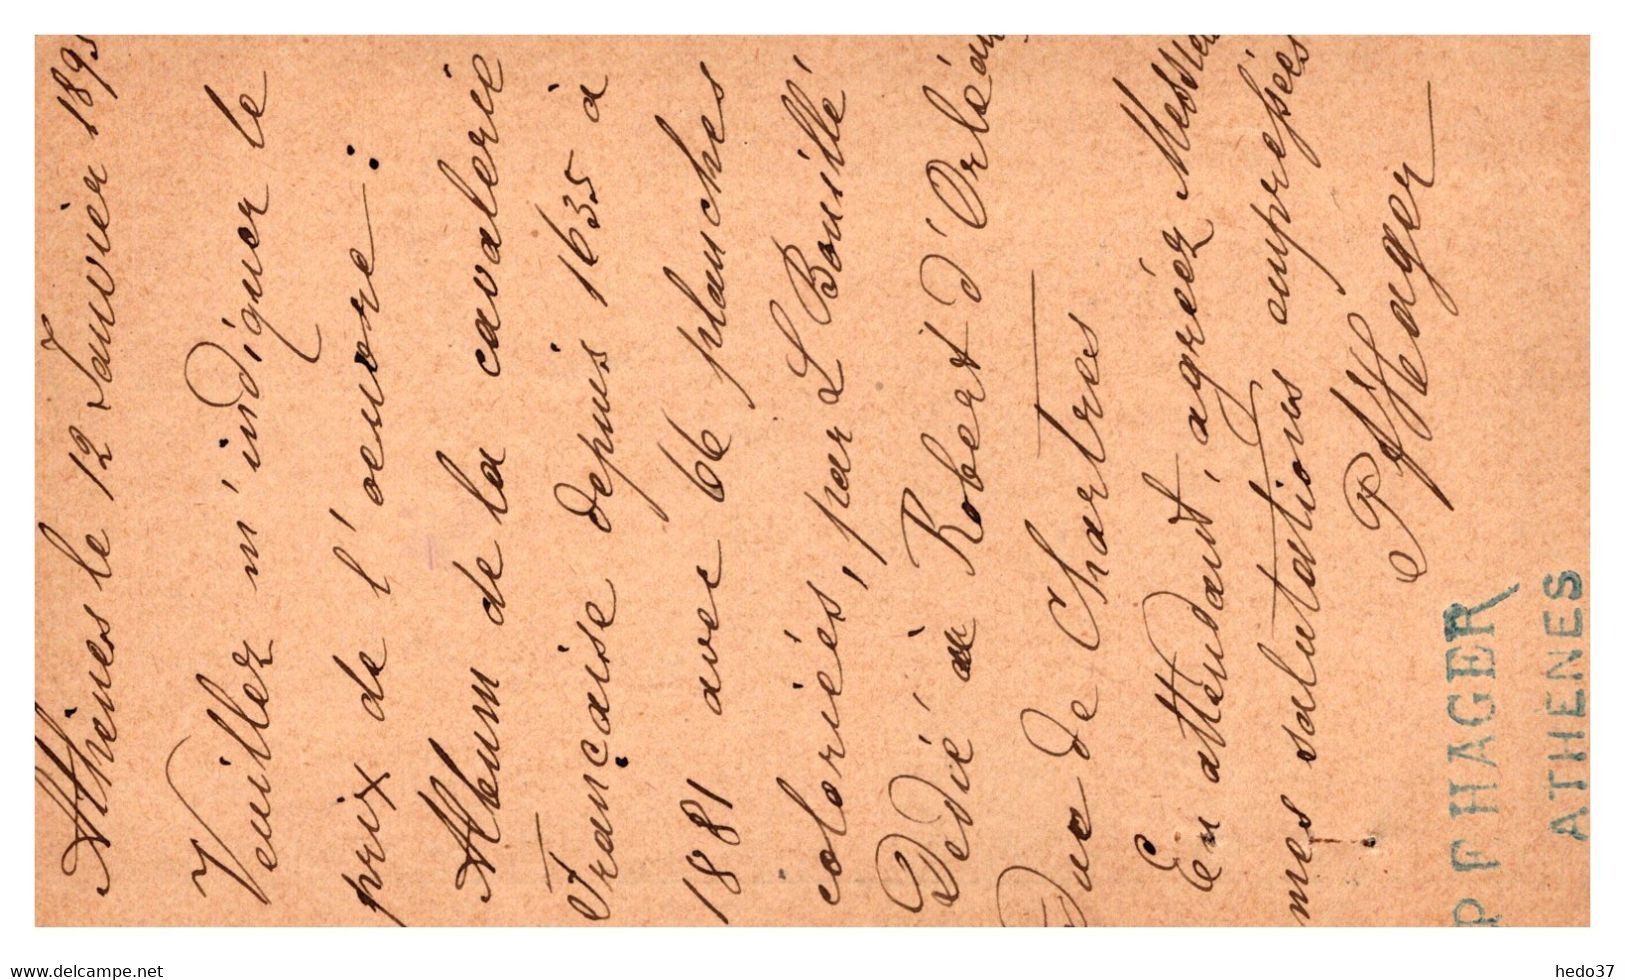 Athènes le 12 Janvier 1895
Veuillez m'indiquer le
prix de l'oeuvre :
Album de la cavalerie
Française depuis 1635 à
1881 avec 66 planches
coloriées, par L Bouillé
Dedié à Robert d'Orléans
Duc de Chartres
En attendant, agréez Mess
mes salutations empressées
P F Hager
P F HAGER
ATHENES
www.delcampe.net
hedo37